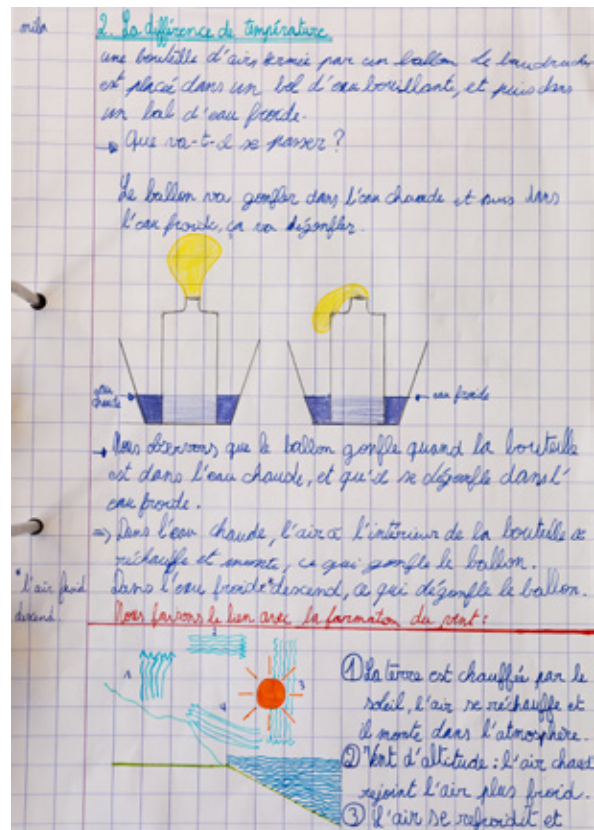 mila
2. La différence de température
une bouteille d'airs fermée par un ballon de baudruche
est placée dans un bol d'eau bouillante, et puis dans
un bol d'eau froide.
→ Que va-t-il se passer ?
Le ballon va gonfler dans l'eau chaude et puis dans
l'eau froide, ça va dégonfler.
eau
chaude
eau froide
→ Nous observons que le ballon gonfle quand la bouteille
est dans l'eau chaude, et qu'il se dégonfle dans l'
eau froide.
=> Dans l'eau chaude, l'air à l'intérieur de la bouteille se
réchauffe et monte, ce qui gonfle le ballon.
Dans l'eau froide*descend, ce qui dégonfle le ballon.
*l'air froid
descend.
Nous faisons le lien avec la formation du vent :
1
2
3
4
① La terre est chauffée par le
soleil, l'air se réchauffe et
il monte dans l'atmosphère.
② Vent d'altitude : l'air chaud
rejoint l'air plus froid.
③ l'air se refroidit et